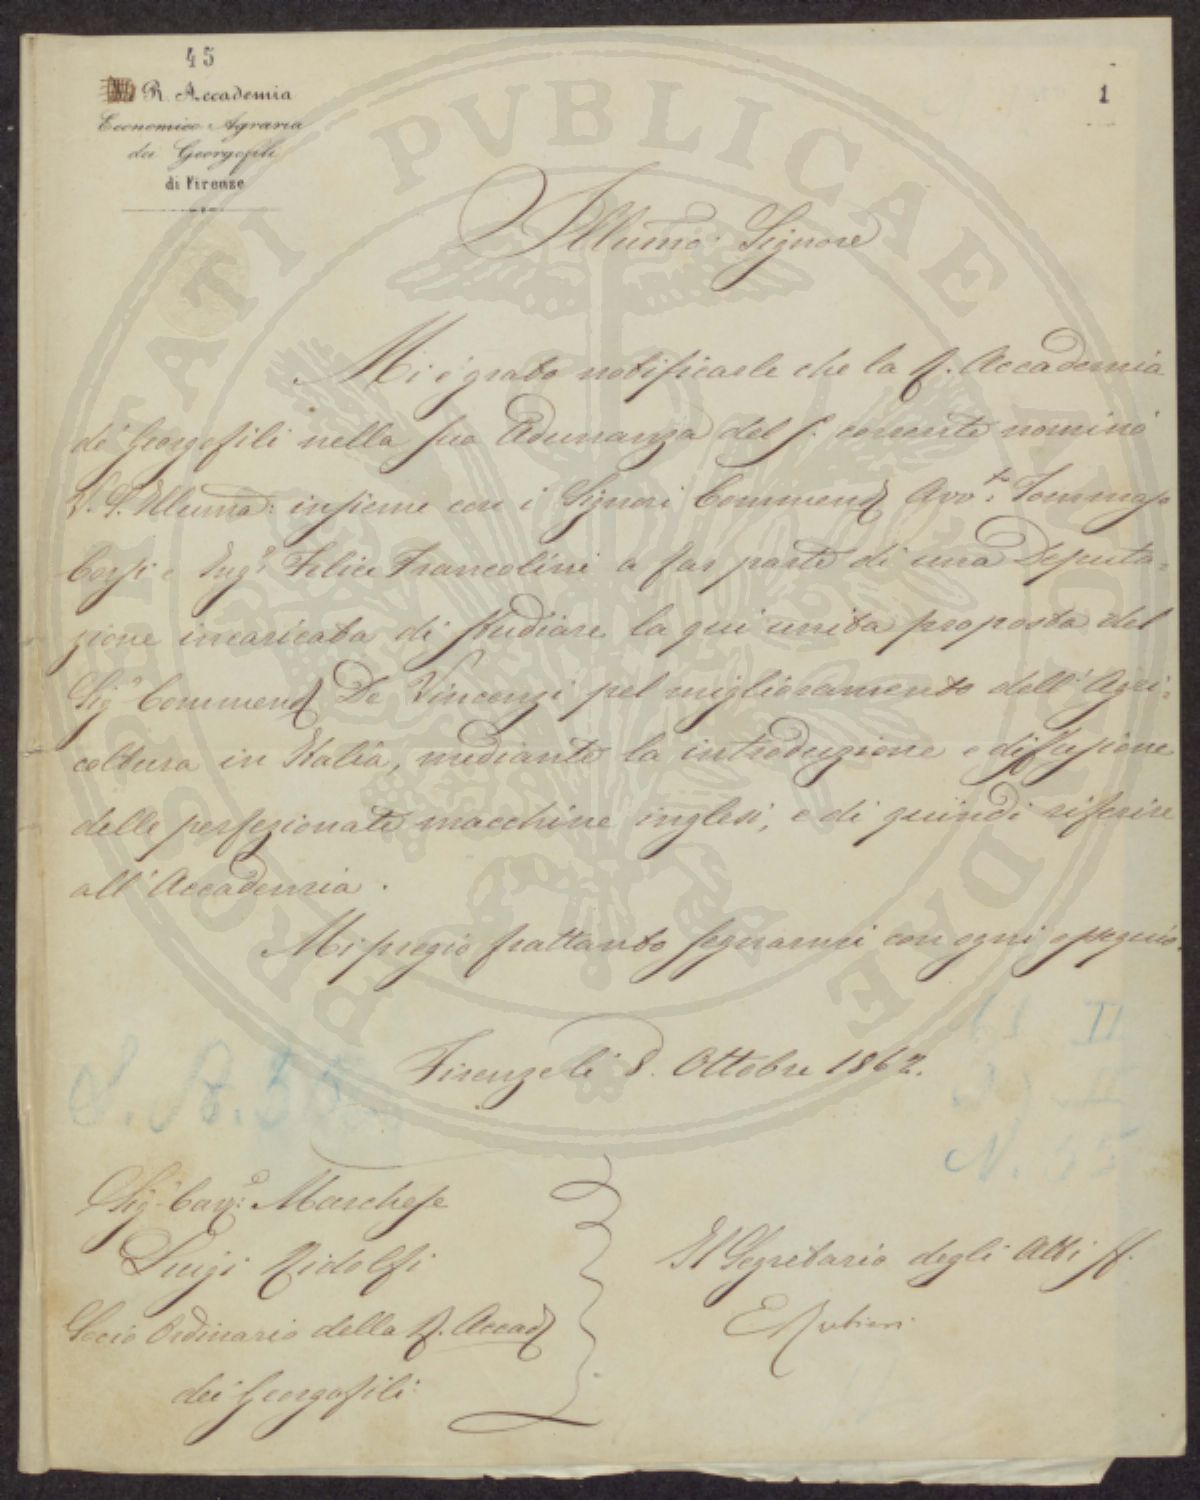 45
1
R. Accademia
Economico-Agraria
dei Georgofili
di Firenze
PROSPERITATI PUBLICAE AUGENDAE
Illumo: Signore
Mi è grato notificarle che la R. Accademia
de' Georgofili nella sua Adunanza del corrente nominò
V. S. Illuma: insieme con i Signori Commend Avvto: Tommaso
Corsi e Inge: Felice Francolini a far parte di una Deputa=
zione incaricata di studiare la qui unita proposta del
Sige Commend De Vincenzi pel miglioramento dell'Agri=
coltura in Italia, mediante la introduzione e diffusione
delle perfezionate macchine inglesi, e di quindi riferire
all'Accademia.
Mi pregio frattanto segnarmi con ogni ossequio.
Firenze li 8. Ottobre 1862.
Sige Cave: Marchese
Luigi Ridolfi
Socio Ordinario della R. Accad
dei Georgofili
Il Segretario degli Atti ff.
E Rubieri